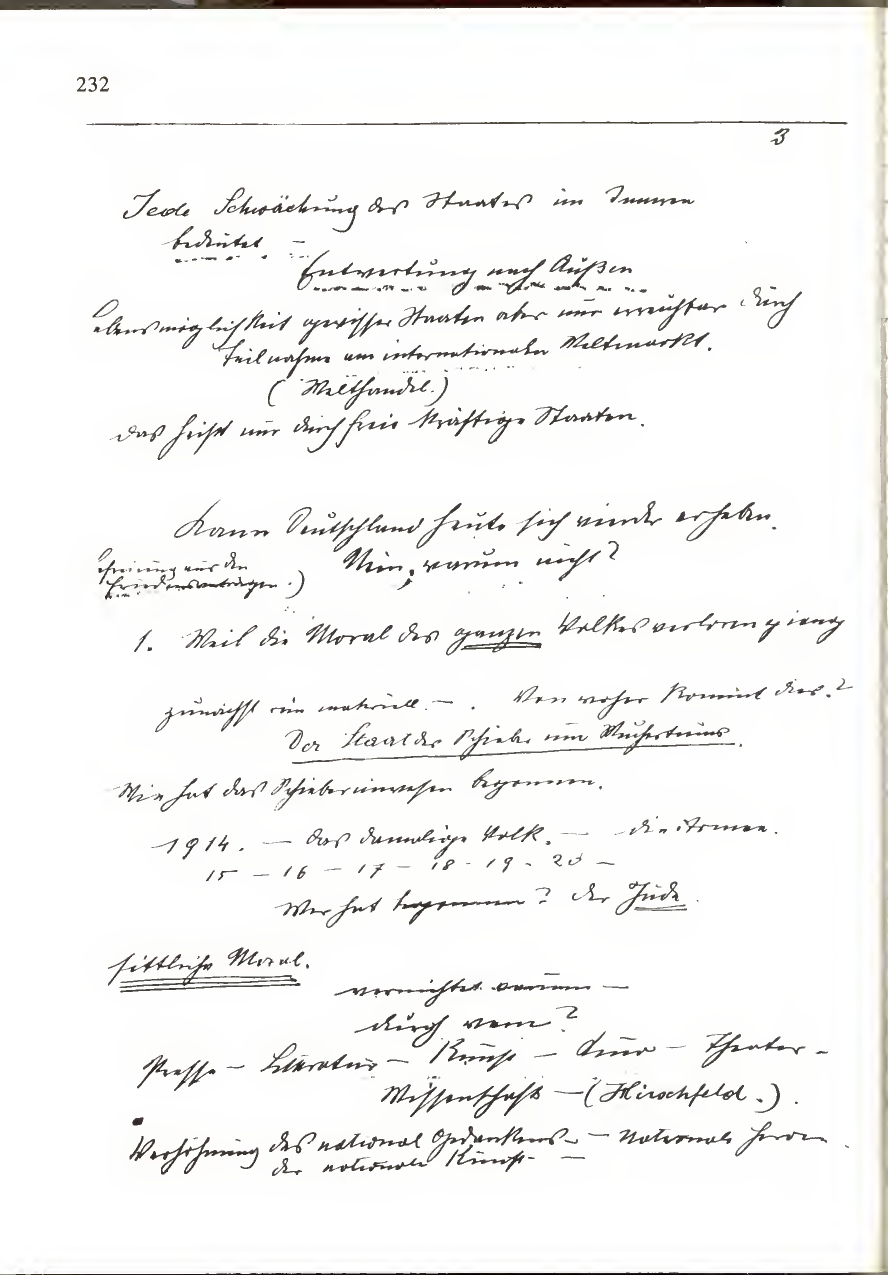 232
3
Jede Schwächung des Staates im Innern
bedeutet –
Entwertung nach Außen
Lebensmöglichkeit gewisser Staaten aber nur erreichbar durch
Teilnahme am internationalen Weltmarkt.
(Welthandel.)
das heißt nur durch freie kräftige Staaten.
Kann Deutschland heute sich wieder erheben.
Nein, warum nicht?
aus den
Friedensverträgen.)
1. Weil die Moral des ganzen Volkes verloren gieng
zunächst rein materiell. – . Von woher kommt dies.?
Der Staat des Schieber und Wuchertums.
Wie hat das Schieberunwesen begonnen.
1914. – das damalige Volk. – die Armee.
15 – 16 – 17 – 18 - 19 - 20 –
Wer hat begonnen? der Jude.
sittliche Moral.
vernichtet warum –
durch wem?
Presse – Literatur – Kunst – Kino – Theater –
Wissenschaft – (Hirschfeld.).
Verhöhnung des national Gedankens – – Nationale Heroen
der nationale Kunst – –